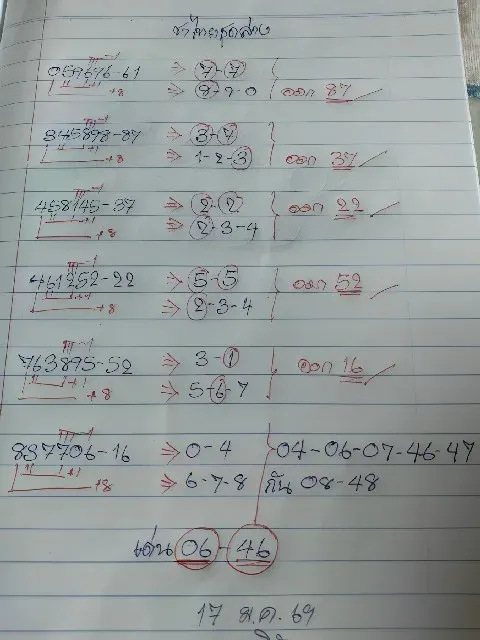 059676-61 ⇒ 7-7
⇒ 8-9-0 ออก 87
+8
345898-87 ⇒ 3-7
⇒ 1-2-3 ออก 37
+8
458145-37 ⇒ 2-2 ออก 22
⇒ 2-3-4
+8
461252-22 ⇒ 5-5 ออก 52
⇒ 2-3-4
+8
763895-52 ⇒ 3-1 ออก 16
⇒ 5-6-7
+8
837706-16 ⇒ 0-4 04-06-07-46-47
⇒ 6-7-8 กัน 08-48
+8
เด่น 06-46
17 ม.ค. 69